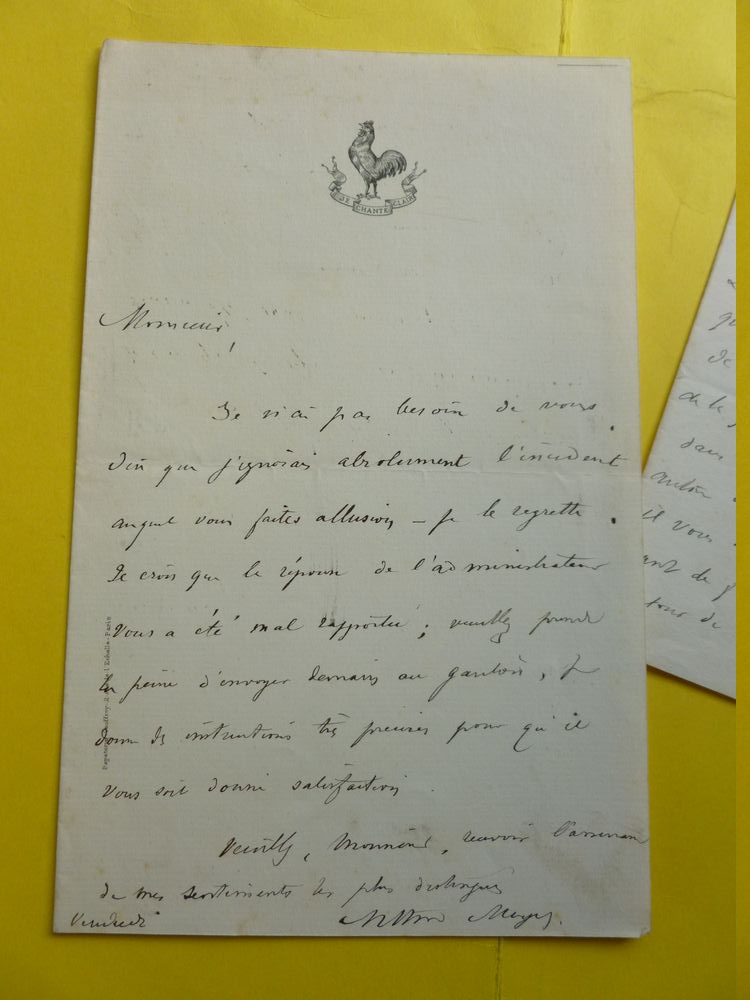 JE CHANTE CLAIR
Monsieur,
Je n'ai pas besoin de vous
dire que j'ignorais absolument l'incident
auquel vous faites allusion - je le regrette.
Je crois que la réponse de l'administrateur
vous a été mal rapportée ; veuillez prendre
la peine d'envoyer demain au gaulois, je
donne des instructions très précises pour qu'il
vous soit donné satisfaction.
Veuillez, Monsieur, recevoir l'assurance
de mes sentiments les plus distingués
Vendredi Arthur Meyer.
Rue de l'Echelle-Paris
de
de la
dans
il vous
tour de